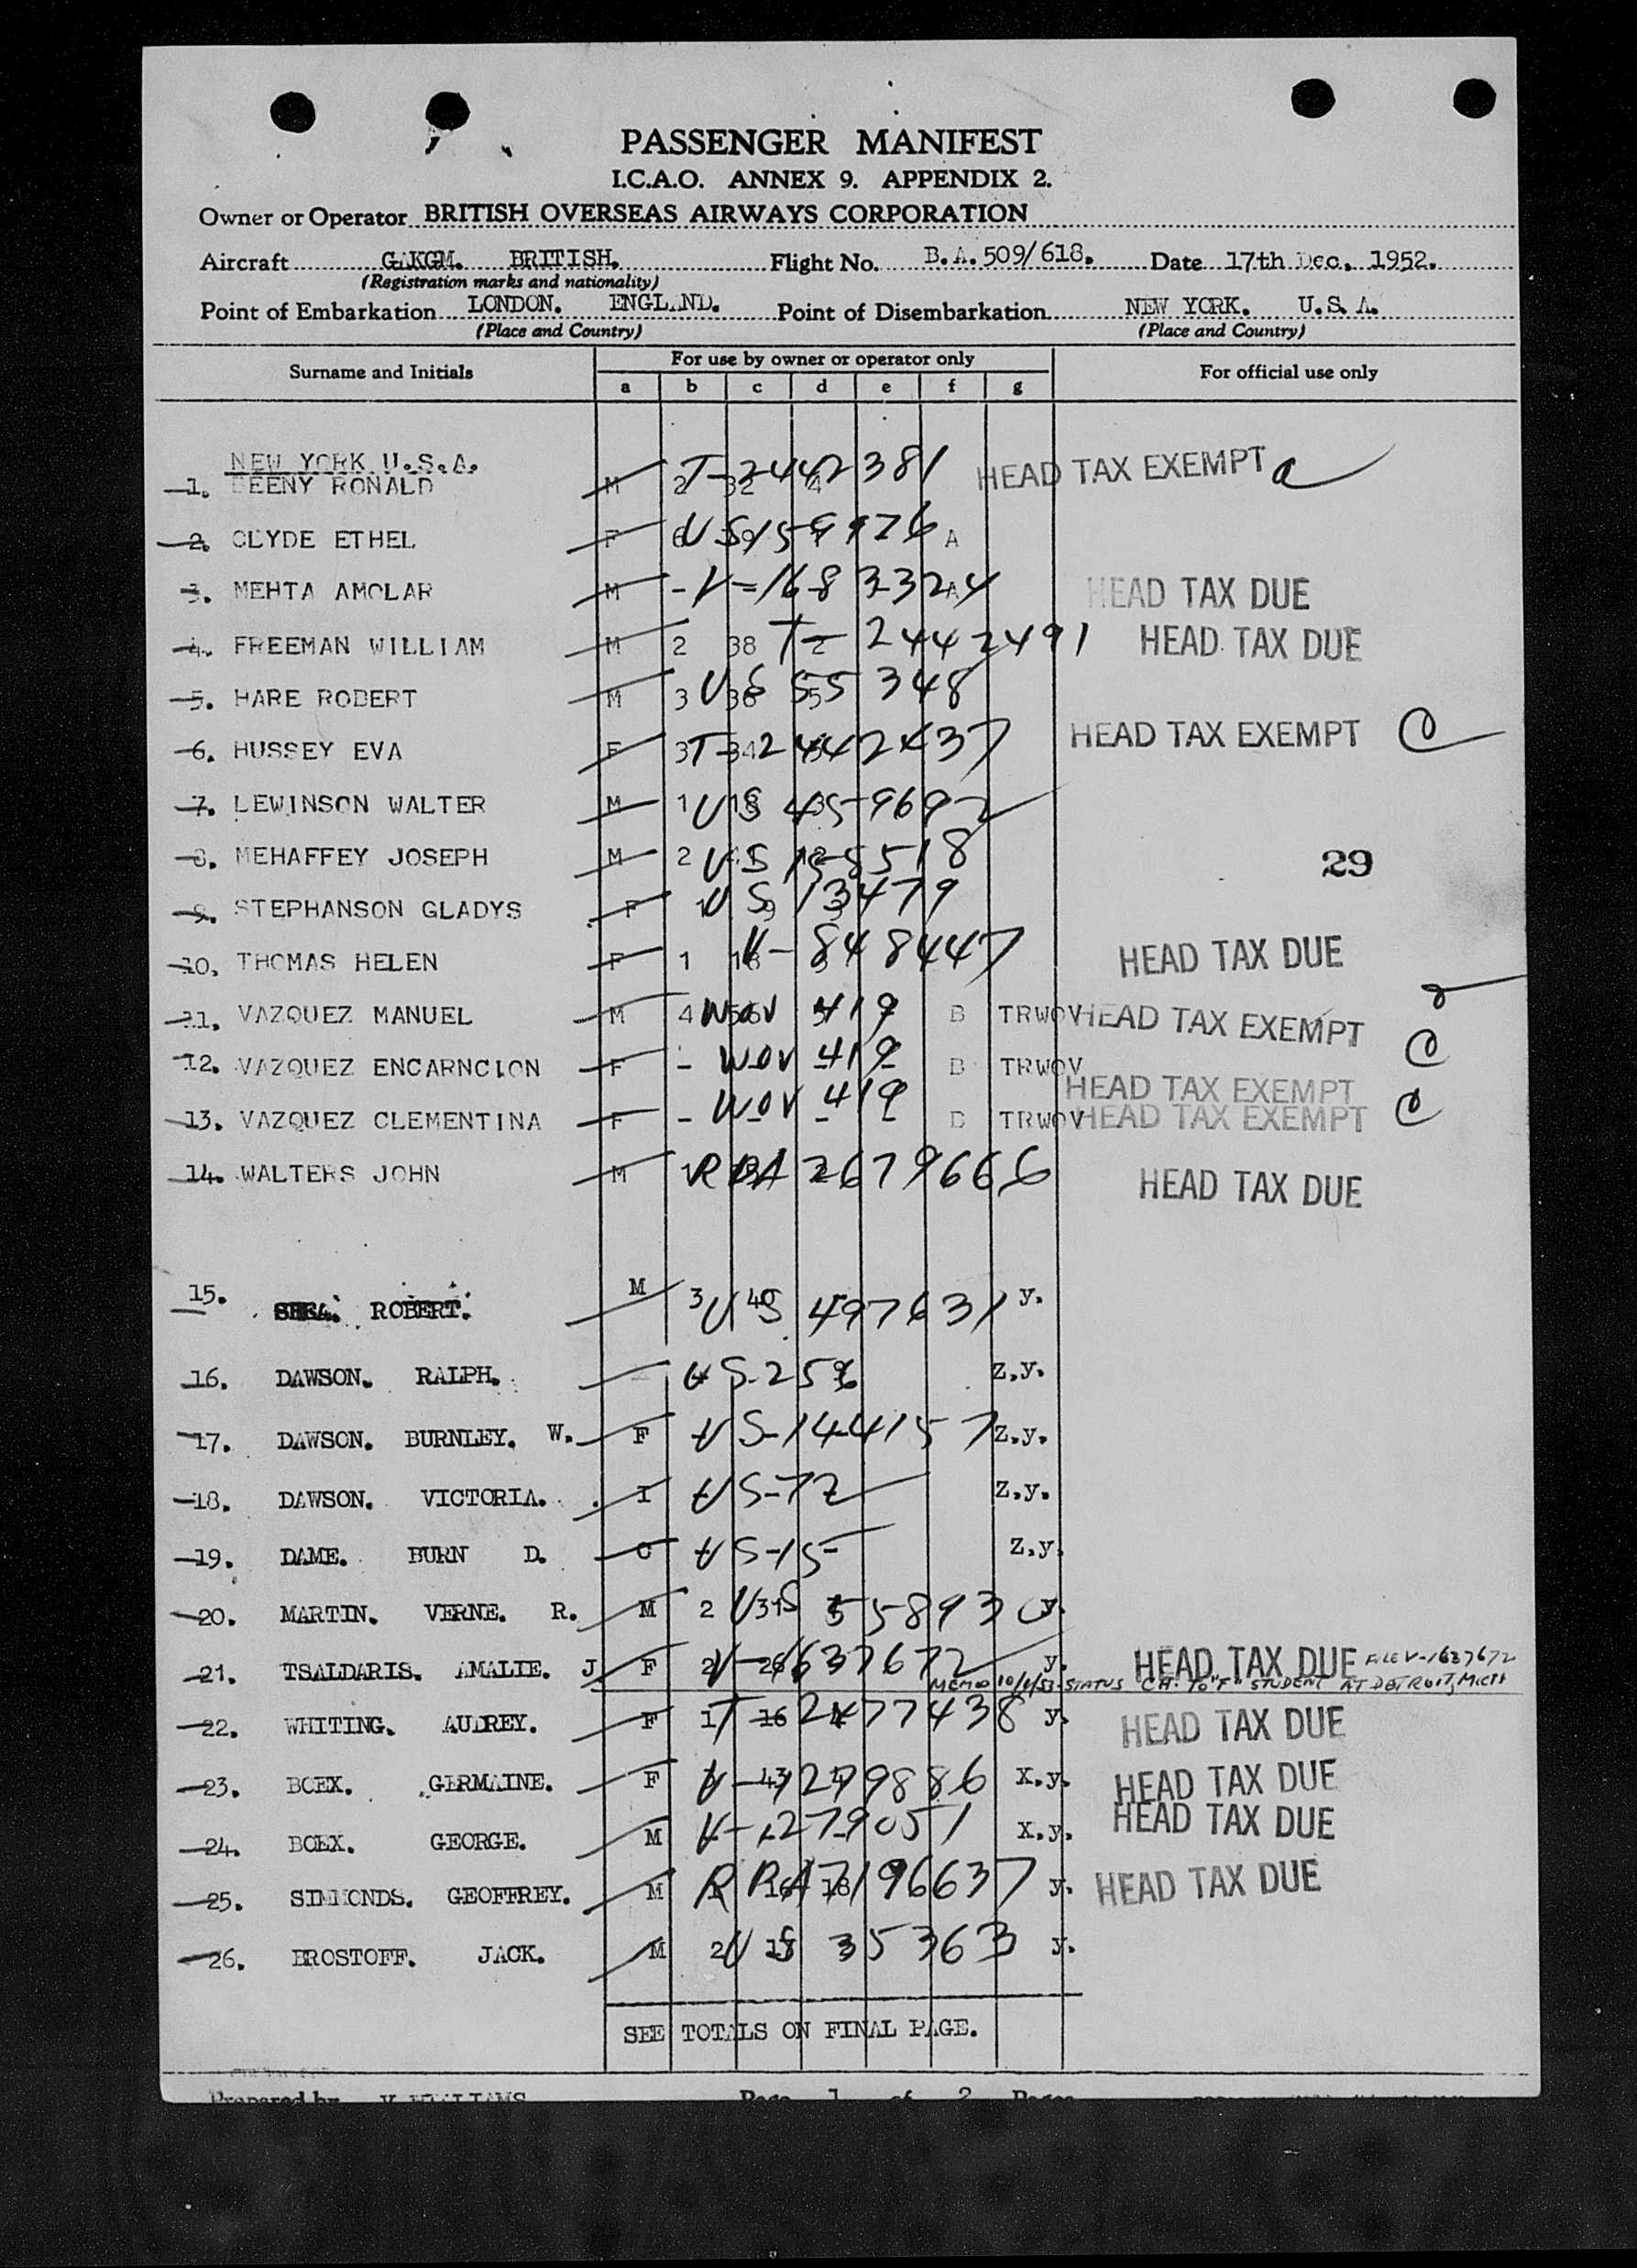 PASSENGER MANIFEST
I.C.A.O. ANNEX 9. APPENDIX 2.
Owner or Operator BRITISH OVERSEAS AIRWAYS CORPORATION
Aircraft GAKGM. BRITISH. Flight No. B.A. 509/618. Date 17th Dec. 1952.
(Registration marks and nationality)
Point of Embarkation LONDON. ENGLAND. Point of Disembarkation NEW YORK. U.S.A.
(Place and Country) (Place and Country)
Surname and Initials For use by owner or operator only For official use only
a b c d e f g
NEW YORK U.S.A.
1. DEENY RONALD M T-2442381 HEAD TAX EXEMPT
2. CLYDE ETHEL F US 159976 A
3. MEHTA AMOLAR M V-1683324 HEAD TAX DUE
4. FREEMAN WILLIAM M 2 38 T-2442491 HEAD TAX DUE
5. HARE ROBERT M 3 US 55348
6. HUSSEY EVA F 3 T-2442437 HEAD TAX EXEMPT
7. LEWINSON WALTER M 1 US 459692
8. MEHAFFEY JOSEPH M 2 US 158518 29
9. STEPHANSON GLADYS F US 13479
10. THOMAS HELEN F 1 V-848447 HEAD TAX DUE
11. VAZQUEZ MANUEL M 4 WOV 419 B TRWOV HEAD TAX EXEMPT
12. VAZQUEZ ENCARNCION F - WOV 419 B TRWOV HEAD TAX EXEMPT
13. VAZQUEZ CLEMENTINA F - WOV 419 TRWOV HEAD TAX EXEMPT
14. WALTERS JOHN M RBA 2679666 HEAD TAX DUE
15. SHEA. ROBERT. M 3 US 497631 y.
16. DAWSON. RALPH. US-256 z.y.
17. DAWSON. BURNLEY. W. F US-144157 z.y.
18. DAWSON. VICTORIA. I US-72 z.y.
19. DAME. BURN D. C US-15 z.y.
20. MARTIN. VERNE. R. M 2 US 55893 y.
21. TSALDARIS. AMALIE. J F V-1637672 y. HEAD TAX DUE FILE V-1637672
MEMO 10/6/53-STATUS CH. TO "F" STUDENT AT DETROIT, MICH
22. WHITING. AUDREY. F 1 T-2477438 y. HEAD TAX DUE
23. BOEX. GERMAINE. F V-1279886 x.y. HEAD TAX DUE
24. BOEX. GEORGE. M V-1279051 x.y. HEAD TAX DUE
25. SIMMONDS. GEOFFREY. M RBA 7196637 y. HEAD TAX DUE
26. BROSTOFF. JACK. M 2 US 35363 y.
SEE TOTALS ON FINAL PAGE.
Prepared by V WILLIAMS Page 1 of 2 Pages